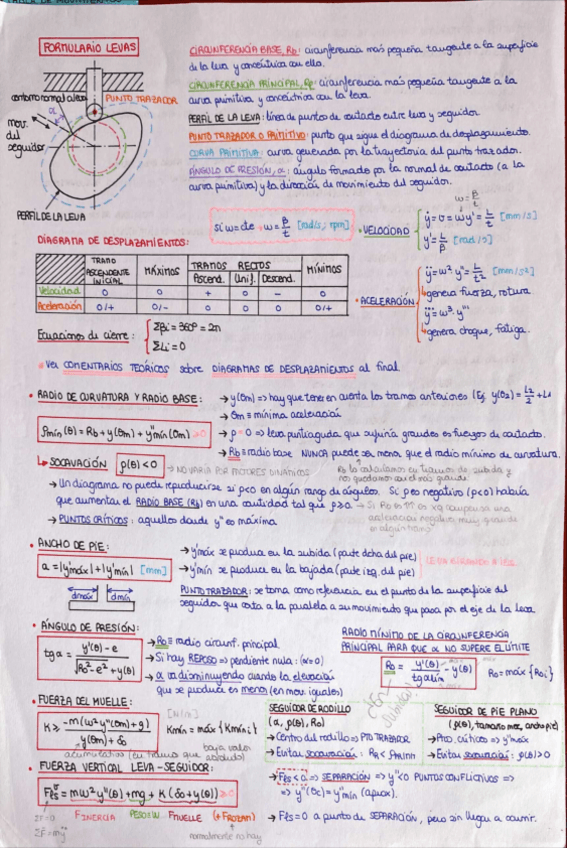 FORMULARIO LEVAS
CIRCUNFERENCIA BASE, Rb: circunferencia más pequeña tangente a la superficie
de la leva y concéntrica con ella.
CIRCUNFERENCIA PRINCIPAL, Rp: circunferencia más pequeña tangente a la
curva primitiva y concéntrica con la leva.
PERFIL DE LA LEVA: línea de puntos de contacto entre leva y seguidor.
PUNTO TRAZADOR O PRIMITIVO: punto que sigue el diagrama de desplazamiento.
CURVA PRIMITIVA: curva generada por la trayectoria del punto trazador.
ÁNGULO DE PRESIÓN, α: ángulo formado por la normal de contacto (a la
curva primitiva) y la dirección de movimiento del seguidor.
PUNTO TRAZADOR
α
mov.
del
seguidor
PERFIL DE LA LEVA
w = β/t
si w = cte → w = β/t [rad/s, rpm]
• VELOCIDAD
ẏ = v = wy' = L/t [mm/s]
y' = L/β [rad/s]
• ACELERACIÓN
ÿ = w² y'' = L/t² [mm/s²]
↳ genera fuerza, rotura
= w³ · y'''
↳ genera choque, fatiga.
DIAGRAMA DE DESPLAZAMIENTOS:
TRAMO ASCENDENTE INICIAL | MÁXIMOS | TRAMOS RECTOS | MÍNIMOS
Ascend. | Unif. | Descend.
Velocidad | 0 | 0 | + | 0 | - | 0
Aceleración | 0/+ | 0/- | 0 | 0 | 0 | 0/+
Ecuaciones de cierre:
Σβi = 360º = 2π
ΣLi = 0
* Ver COMENTARIOS TEÓRICOS sobre DIAGRAMAS DE DESPLAZAMIENTOS al final.
• RADIO DE CURVATURA Y RADIO BASE:
ρmín (θ) = Rb + y(θm) + y''mín (θm) ≥ 0
→ y(θm) => hay que tener en cuenta los tramos anteriores (Ej. y(θ2) = L2/2 + L1
→ θm ≡ mínima aceleración
→ ρ = 0 => leva puntiaguda que sufriría grandes esfuerzos de contacto.
→ Rb ≡ radio base NUNCA puede ser menor que el radio mínimo de curvatura.
↳ SOCAVACIÓN ρ(θ) < 0 → NO VARÍA POR MOTORES DINÁMICOS
Rb lo calculamos en tramos de subida y
nos quedamos con el más grande
→ Un diagrama no puede reproducirse si ρ<0 en algún rango de ángulos. Si ρ es negativo (ρ<0) habría
que aumentar el RADIO BASE (Rb) en una cantidad tal que ρ≥0.
→ PUNTOS CRÍTICOS: aquellos donde y'' es máxima
• ANCHO DE PIE:
a = |y'máx| + |y'mín| [mm]
dmáx dmín
→ y'máx se produce en la subida (parte dcha del pie)
→ y'mín se produce en la bajada (parte izq. del pie)
PUNTO TRAZADOR: se toma como referencia en el punto de la superficie del
seguidor que corta a la paralela a su movimiento que pasa por el eje de la leva.
• ÁNGULO DE PRESIÓN:
tg α = y'(θ) - e / √(Ro² - e²) + y(θ)
→ Ro ≡ radio circunf. principal
→ Si hay REPOSO => pendiente nula: (α=0)
→ α va disminuyendo cuando la elevación
que se produce es menor (en mov. iguales)
RADIO MÍNIMO DE LA CIRCUNFERENCIA
PRINCIPAL PARA QUE α NO SUPERE EL LÍMITE
Ro = y'(θ)/tg αlím - y(θ)
Ro = máx {Roi}
• FUERZA DEL MUELLE:
K ≥ -m(w²y''(θm) + g) / y(θm) + δo
[N/m]
Kmín = máx {Kmíni}
SEGUIDOR DE RODILLO
(α, ρ(θ), Ro)
→ Centro del rodillo => PTO TRAZADOR
→ Evitar socavación: RR < ρmín
SEGUIDOR DE PIE PLANO
→ Pto. críticos => y''máx
→ Evitar socavación: ρ(θ) > 0
• FUERZA VERTICAL LEVA-SEGUIDOR:
= mw²y''(θ) + mg + K (δo + y(θ)) ≥ 0
FINERCIA PESO=W FMUELLE (+ FROZAM)
normalmente no hay
ΣF = 0
ΣF = mÿ
→ Fls < 0 => SEPARACIÓN => y''<0 PUNTOS CONFLICTIVOS =>
=> y''(θc) = y''mín (aprox).
→ Fls = 0 a punto de SEPARACIÓN, pero sin llegar a ocurrir.